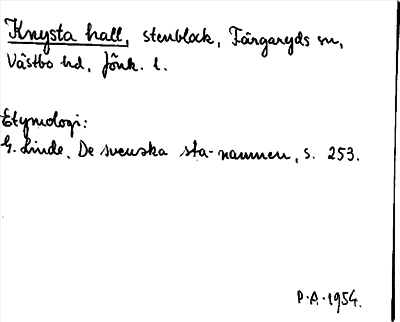 Knysta hall, stenblock, Färgaryds sn,
Västbo hd, Jönk. l.
Etymologi:
G. Linde, De svenska sta-namnen, s. 253.
P.A. 1954.